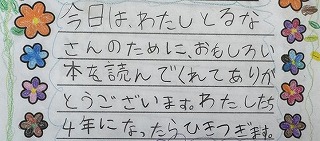 今日は、わたしとるな
さんのために、おもしろい
本を読んでくれてありが
とうございます。わたしたち
4年になったらひきつぎます。